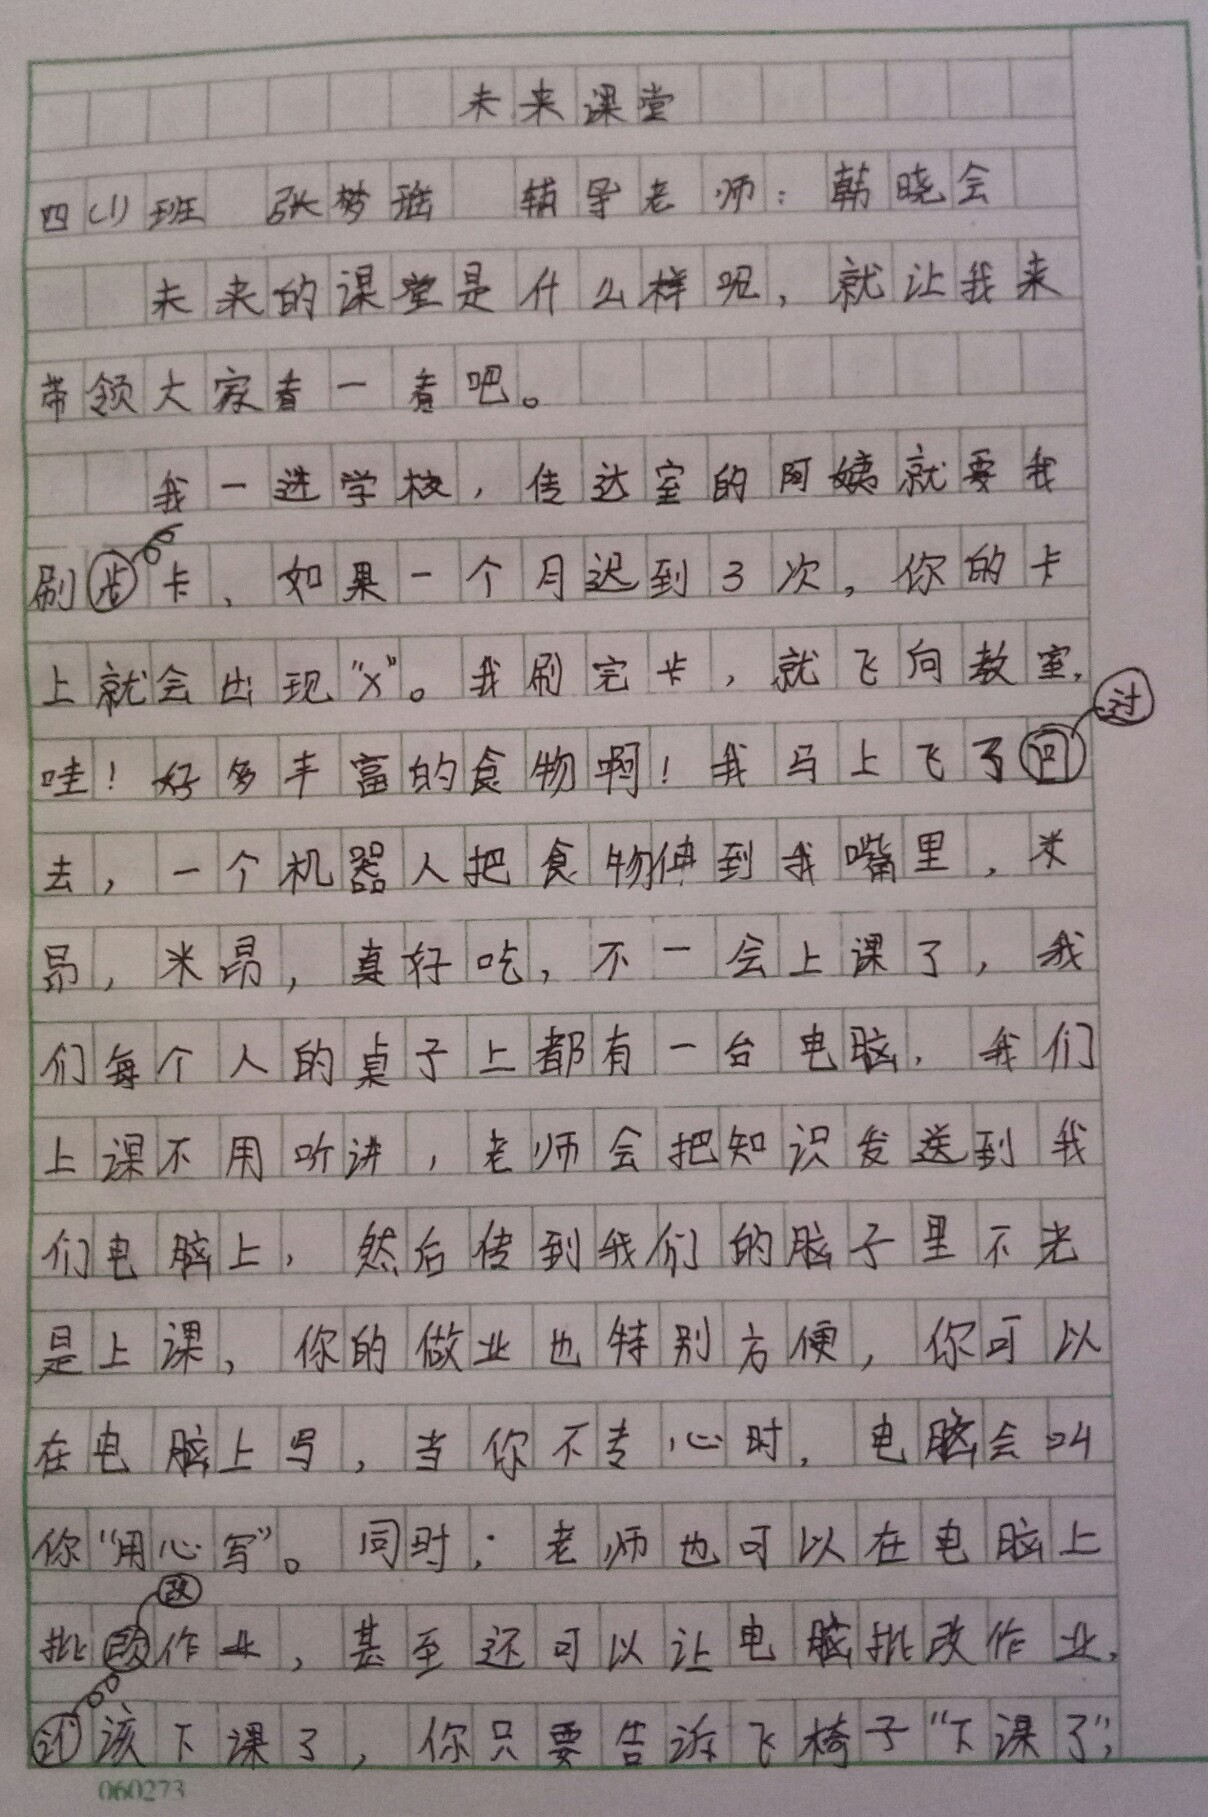 未来课堂
四(1)班 张梦瑶 辅导老师：韩晓会
未来的课堂是什么样呢，就让我来
带领大家看一看吧。
我一进学校，传达室的阿姨就要我
刷卡、如果一个月迟到3次，你的卡
上就会出现“X”。我刷完卡，就飞向教室，
过
哇！好多丰富的食物啊！我马上飞了回
去，一个机器人把食物伸到我嘴里，米
昂，米昂，真好吃，不一会上课了，我
们每个人的桌子上都有一台电脑，我们
上课不用听讲，老师会把知识发送到我
们电脑上，然后传到我们的脑子里不光
是上课，你的做业也特别方便，你可以
在电脑上写，当你不专心时，电脑会叫
你“用心写”。同时；老师也可以在电脑上
改
批改作业，甚至还可以让电脑批改作业，
该下课了，你只要告诉飞椅子“下课了”，
060273